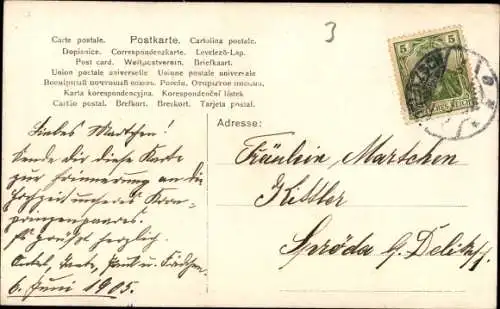 3
Carte postale. Postkarte. Cartolina postale.
Dopisnice. Correspondenzkarte. Levelező-Lap.
Post card. Weltpostverein. Briefkaart.
Union postale universelle Unione postale universale
Всемірный почтовый союзъ. Россія. Открытое письмо.
Karta korespondencyjna. Korespondenční lístek
Cartão postal. Brefkort. Brevkort. Tarjeta postal.
5 5
Adresse:
Liebes Martchen!
Sende dir diese Karte
zur Erinnerung an die
Hochzeit unseres Kron-
prinzenpaares.
Es grüßt herzlich
Onkel, Tante, Paul u. Friedchen
6. Juni 1905.
Fräulein Martchen
Kittler
Spröda b. Delitzsch